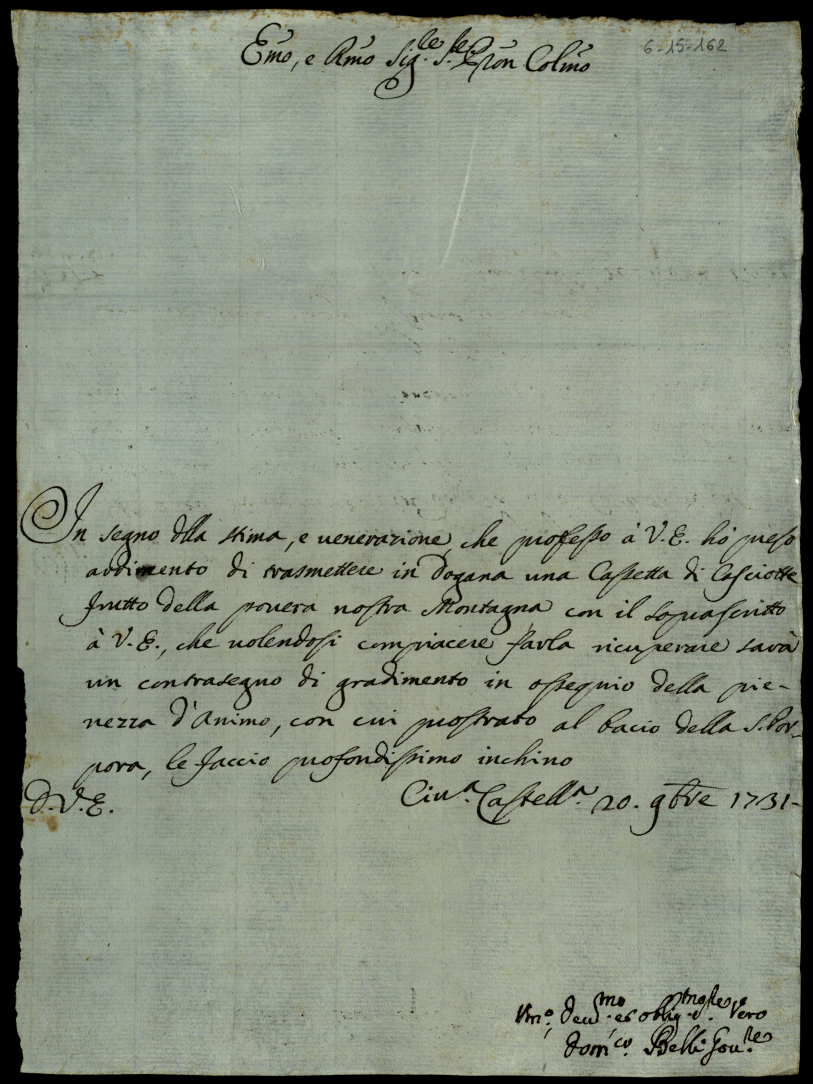 Emo, e Rmo Sig.re S.re Pron Colmo
6-15-162
In segno dlla stima, e uenerazione, che professo à V.E. hò preso
ardimento di trasmettere in Dogana una Cassetta di Casciotte
frutto della pouera nostra Montagna con il soprascritto
à V.E., che uolendosi compiacere farla ricuperare sarà
un contrasegno di gradimento in ossequio della pie-
nezza d'Animo, con cui prostrato al bacio della S. Por-
pora, le faccio profondissimo inchino
D.V.E.
Ciu.a Castell.a 20. 9bre 1731-
Vm.o Deu.mo et oblig.mo Se.re Vero
Dom.co Belli Gou.re